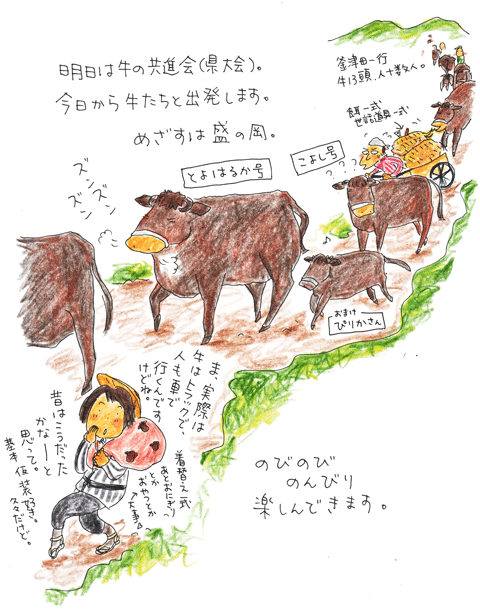 明日は牛の共進会(県大会)。
今日から牛たちと出発します。
めざすは盛の岡。
釜津田一行
牛13頭、人十数人。
餌一式
世話道具一式
ズンズン
ズンズン
とよはるか号
こよし号
???
♪
おまけ
ぴりかさん
ま、実際は
牛はトラックで、
人も車で
行くんです
けどね。
昔はこうだった
かなーと
思って。
基本仮装好き。
久々だけど。
着替え一式
あとおにぎり
とか
おやつとか
↑大事
のびのび
のんびり
楽しんできます。